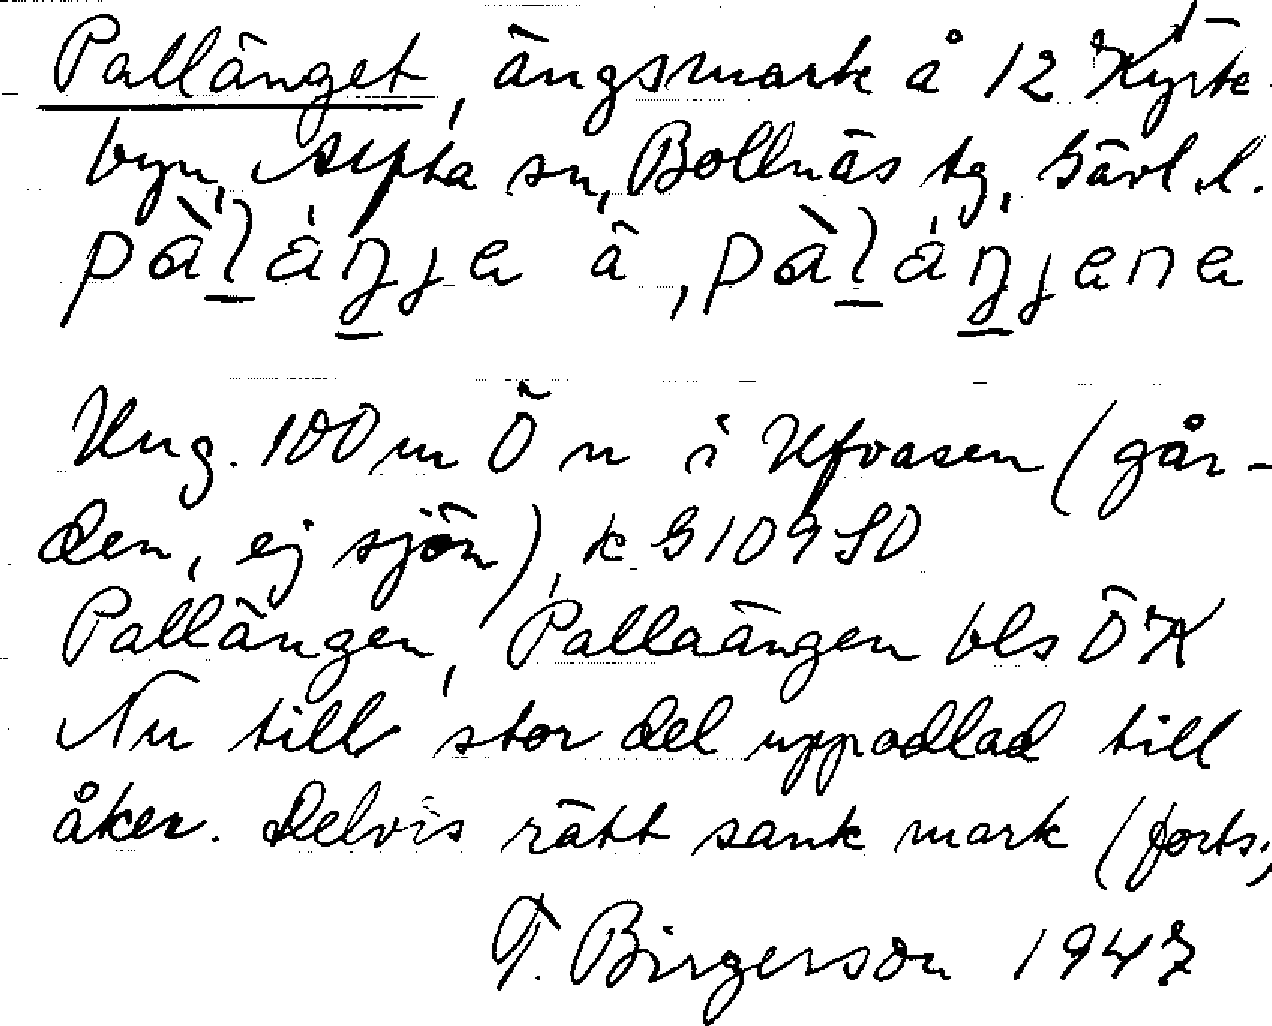 Pallänget, ängsmark å 12 Kyrk-
byn, Alfta sn, Bollnäs tg, Gävl. l.
pàláŋje â, pàláŋjena
Ung. 100 m Ö n i Ufvasen (går-
den, ej sjön), k G 109 SO
Pallängen, Pallaängen bls ÖK
Nu till stor del uppodlad till
åker. Delvis rätt sank mark (forts.)
T. Birgerson 1947